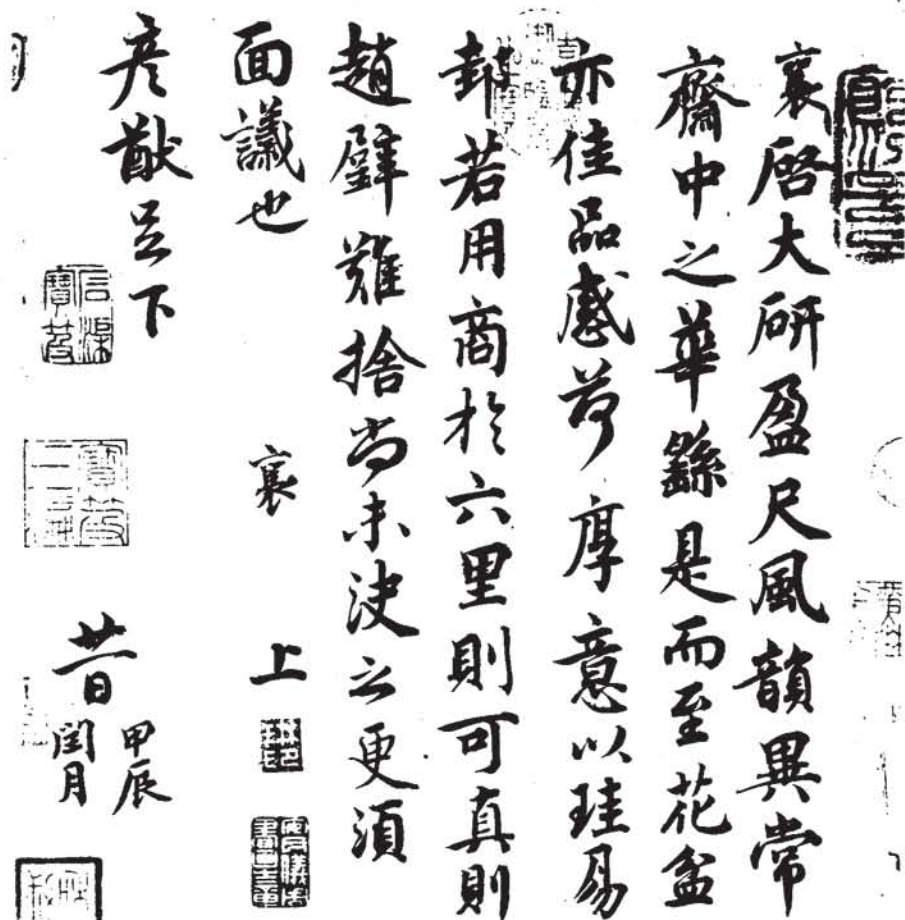 襄啓大研盈尺風韻異常
齋中之華繇是而至花盆
亦佳品感荷厚意以珪易
邽若用商於六里則可真則
趙璧難捨尚未決之更須
面議也 襄 上
彥猷足下
廿一日
甲辰
閏月